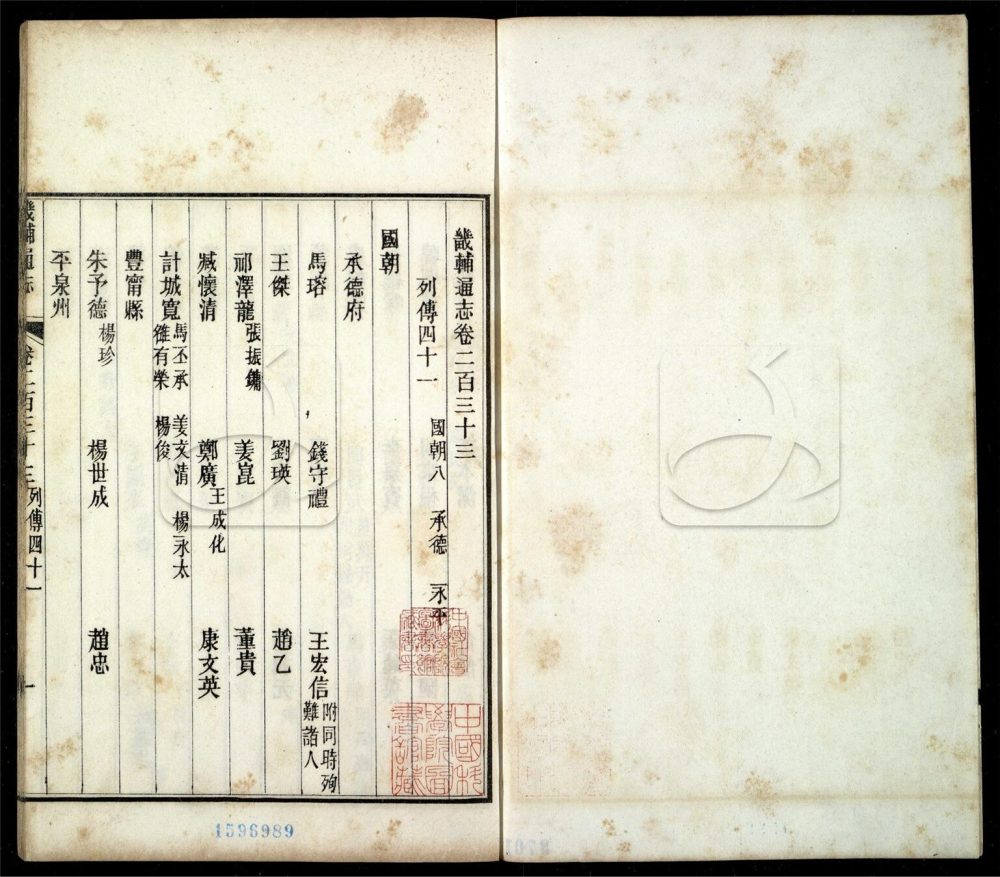 畿輔通志卷二百三十三
列傳四十一 國朝八 承德 永平
國朝
承德府
馬瑢 錢守禮 王宏信 附同時殉難諸人
王傑 劉瑛 趙乙
祁澤龍 張振鏞 姜崑 董貴
臧懷清 鄭廣 王成化 康文英
計城寬 馬丕承 姜文清 楊永太 雒有榮 楊俊
豐甯縣
朱予德 楊珍 楊世成 趙忠
平泉州
畿輔通志 卷二百三十三 列傳四十一 一
中國科學院圖書館藏
1596989